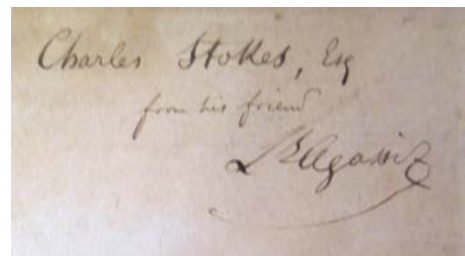 Charles Stokes, Esq
from his friend
Ls Agassiz